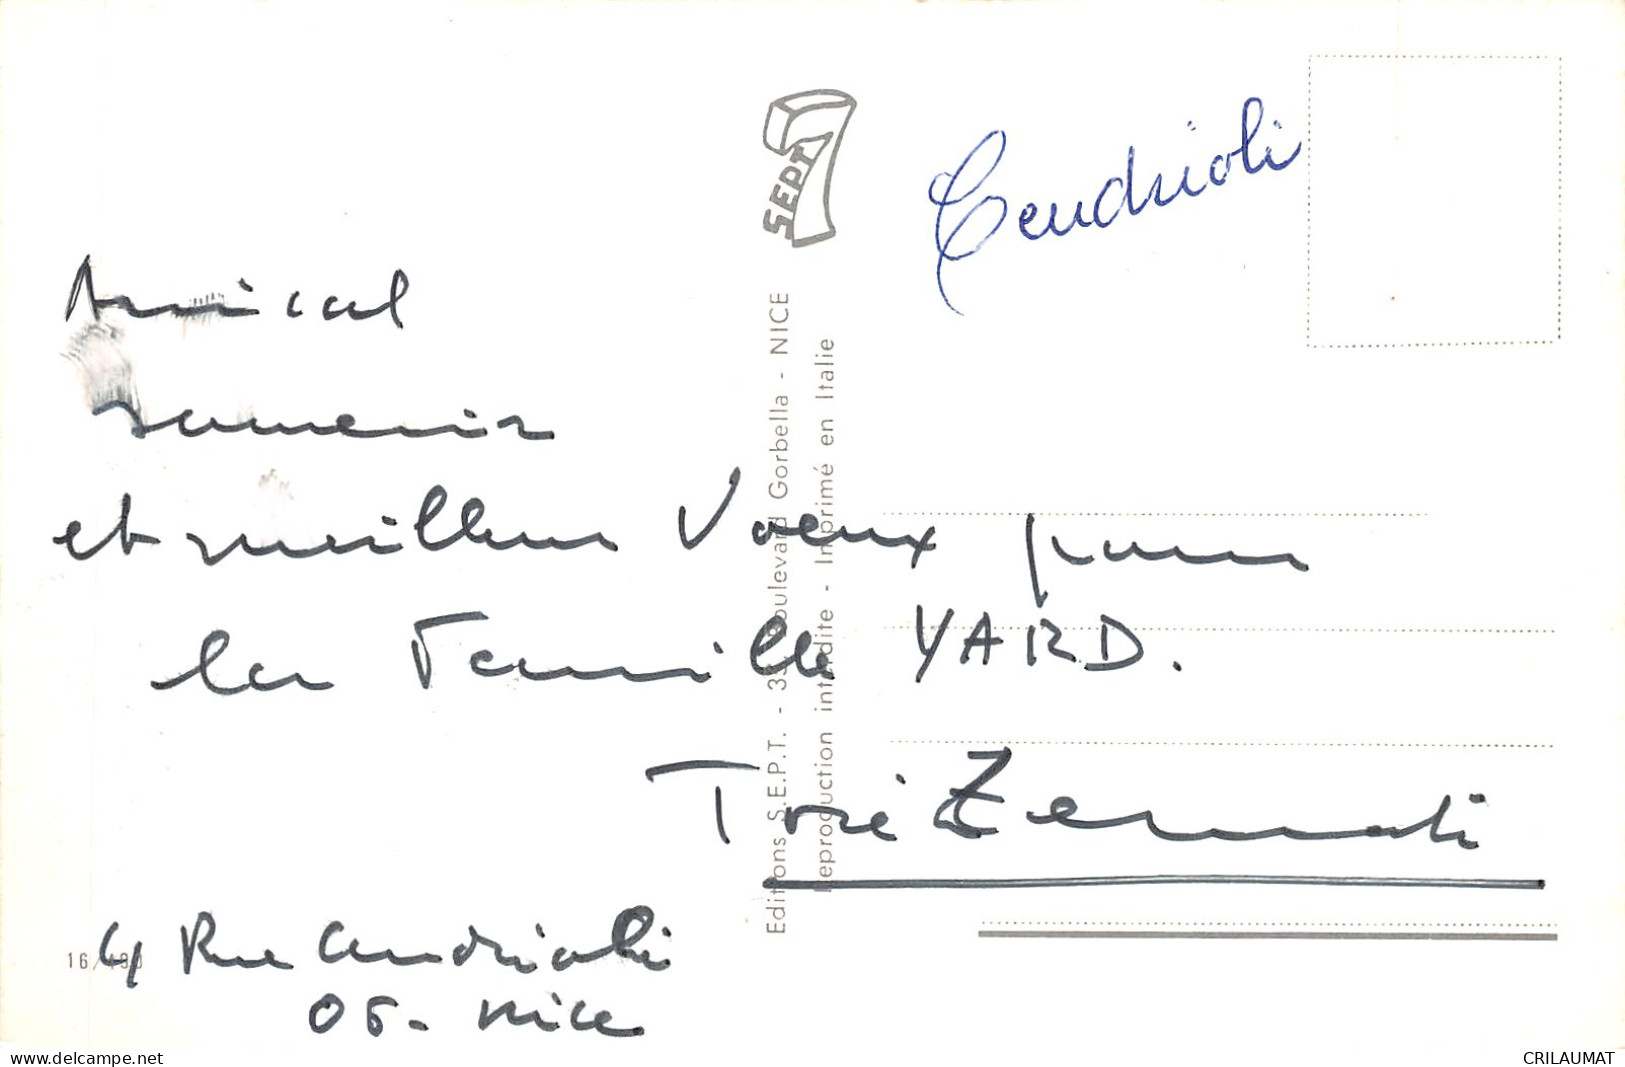 Amical
souvenir
et meilleurs Voeux pour
la Famille YARD.
4 Rue Andrioli
06 - Nice
16/490
SEPT 7
Editions S.E.P.T. - 33, Boulevard Gorbella - NICE
Reproduction interdite - Imprimé en Italie
www.delcampe.net
CRILAUMAT